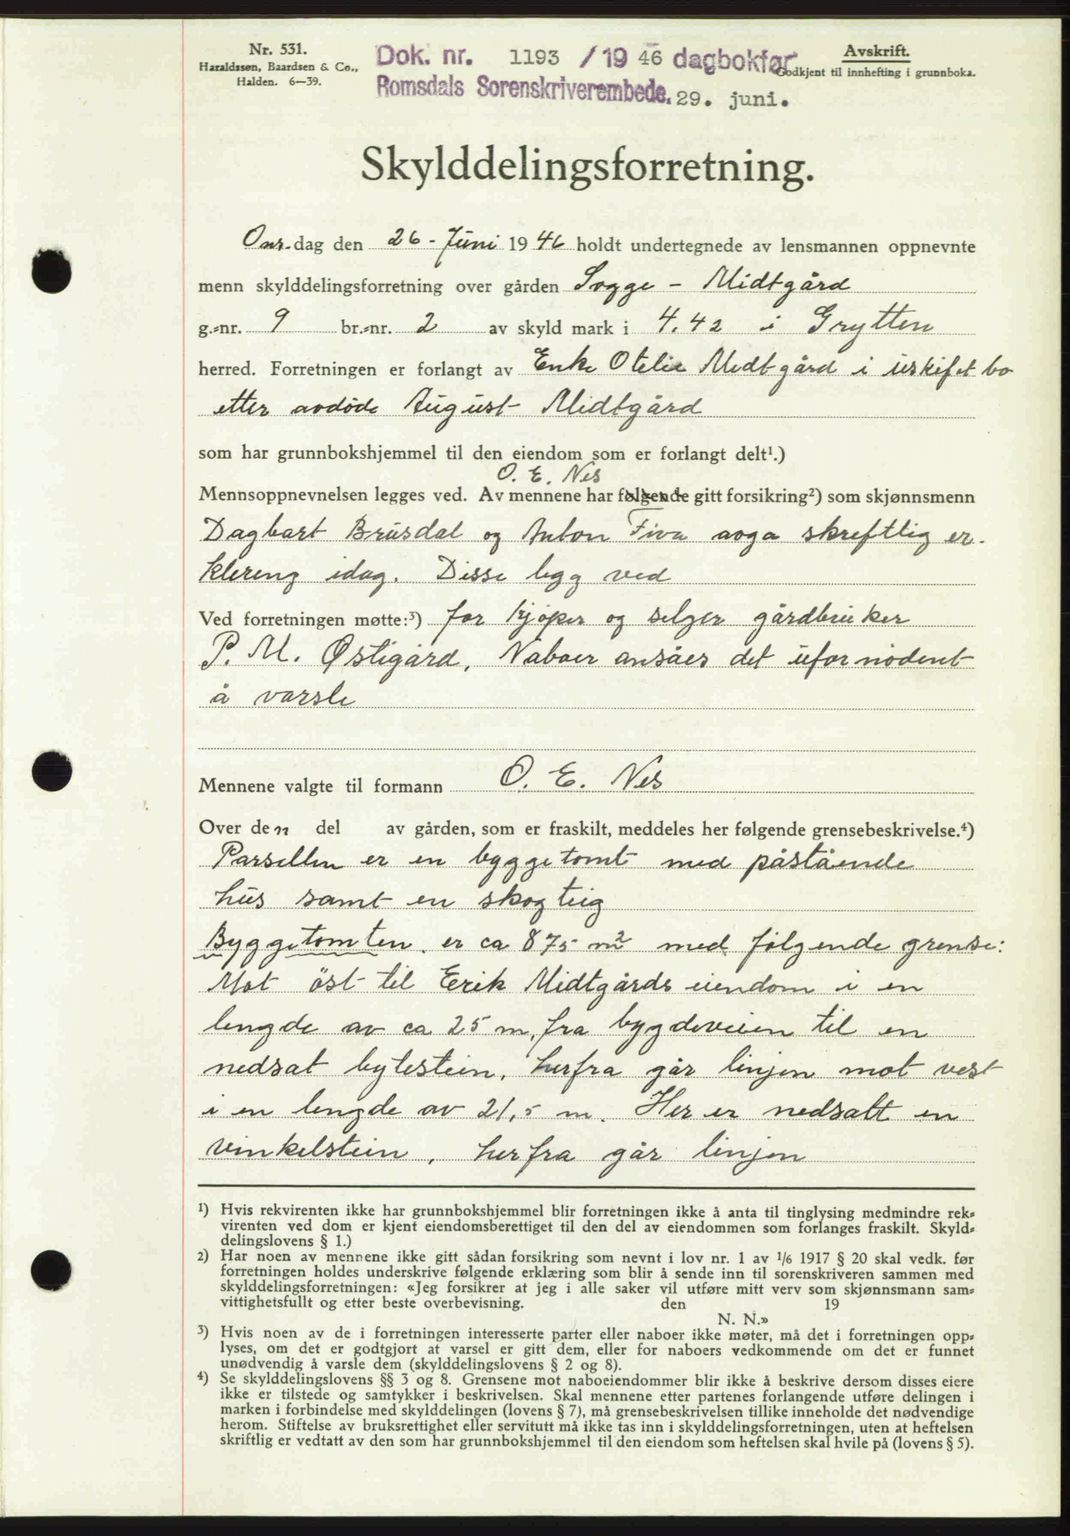 Nr. 531.
Haraldssøn, Baardsen & Co.,
Halden. 6—39.
Dok. nr. 1193 / 19 46 dagbokfør
Romsdals Sorenskriverembede. 29. juni.
Avskrift.
Godkjent til innhefting i grunnboka.
Skylddelingsforretning.
Ons-dag den 26 - Juni 19 46 holdt undertegnede av lensmannen oppnevnte
menn skylddelingsforretning over gården Sogge - Midtgård
g.-nr. 9 br.-nr. 2 av skyld mark i 4.42 i Grytten
herred. Forretningen er forlangt av Enke Otelie Midtgård i uskifet bo
etter avdøde August Midtgård
som har grunnbokshjemmel til den eiendom som er forlangt delt¹.)
O. E. Nes
Mennsoppnevnelsen legges ved. Av mennene har følgende gitt forsikring²) som skjønnsmenn
Dagbart Brusdal og Anton Fiva avga skreftlig er-
klereng idag. Disse legg ved
Ved forretningen møtte:³) for kjøper og selger gårdbruker
P. M. Østigård, Naboer ansåes det ufornødent
å varsle
Mennene valgte til formann O. E. Nes
Over den del av gården, som er fraskilt, meddeles her følgende grensebeskrivelse.⁴)
Parsellen er en byggetomt med påstående
hus samt en skogteig
Byggetomten er ca 875 m² med følgende grense:
Mot öst til Erik Midtgårds eiendom i en
lengde av ca 25 m, fra bygdeveien til en
nedsat bytestein, herfra går linjen mot vest
i en lengde av 21,5 m. Her er nedsatt en
vinkelstein, herfra går linjen
¹) Hvis rekvirenten ikke har grunnbokshjemmel blir forretningen ikke å anta til tinglysing medmindre rek-
virenten ved dom er kjent eiendomsberettiget til den del av eiendommen som forlanges fraskilt. Skyld-
delingslovens § 1.)
²) Har noen av mennene ikke gitt sådan forsikring som nevnt i lov nr. 1 av 1/6 1917 § 20 skal vedk. før
forretningen holdes underskrive følgende erklæring som blir å sende inn til sorenskriveren sammen med
skylddelingsforretningen: «Jeg forsikrer at jeg i alle saker vil utføre mitt verv som skjønnsmann sam-
vittighetsfullt og etter beste overbevisning. den 19
N. N.»
³) Hvis noen av de i forretningen interesserte parter eller naboer ikke møter, må det i forretningen opp-
lyses, om det er godtgjort at varsel er gitt dem, eller for naboers vedkommende om det er funnet
unødvendig å varsle dem (skylddelingslovens § 2 og 8).
⁴) Se skylddelingslovens §§ 3 og 8. Grensene mot naboeiendommer blir ikke å beskrive dersom disses eiere
ikke er tilstede og samtykker i beskrivelsen. Skal mennene etter partenes forlangende utføre delingen i
marken i forbindelse med skylddelingen (lovens § 7), må grensebeskrivelsen tillike inneholde det nødvendige
herom. Stiftelse av bruksrettighet eller servitutt må ikke tas inn i skylddelingsforretningen, uten at heftelsen
skriftlig er vedtatt av den som har grunnbokshjemmel til den eiendom som heftelsen skal hvile på (lovens § 5).